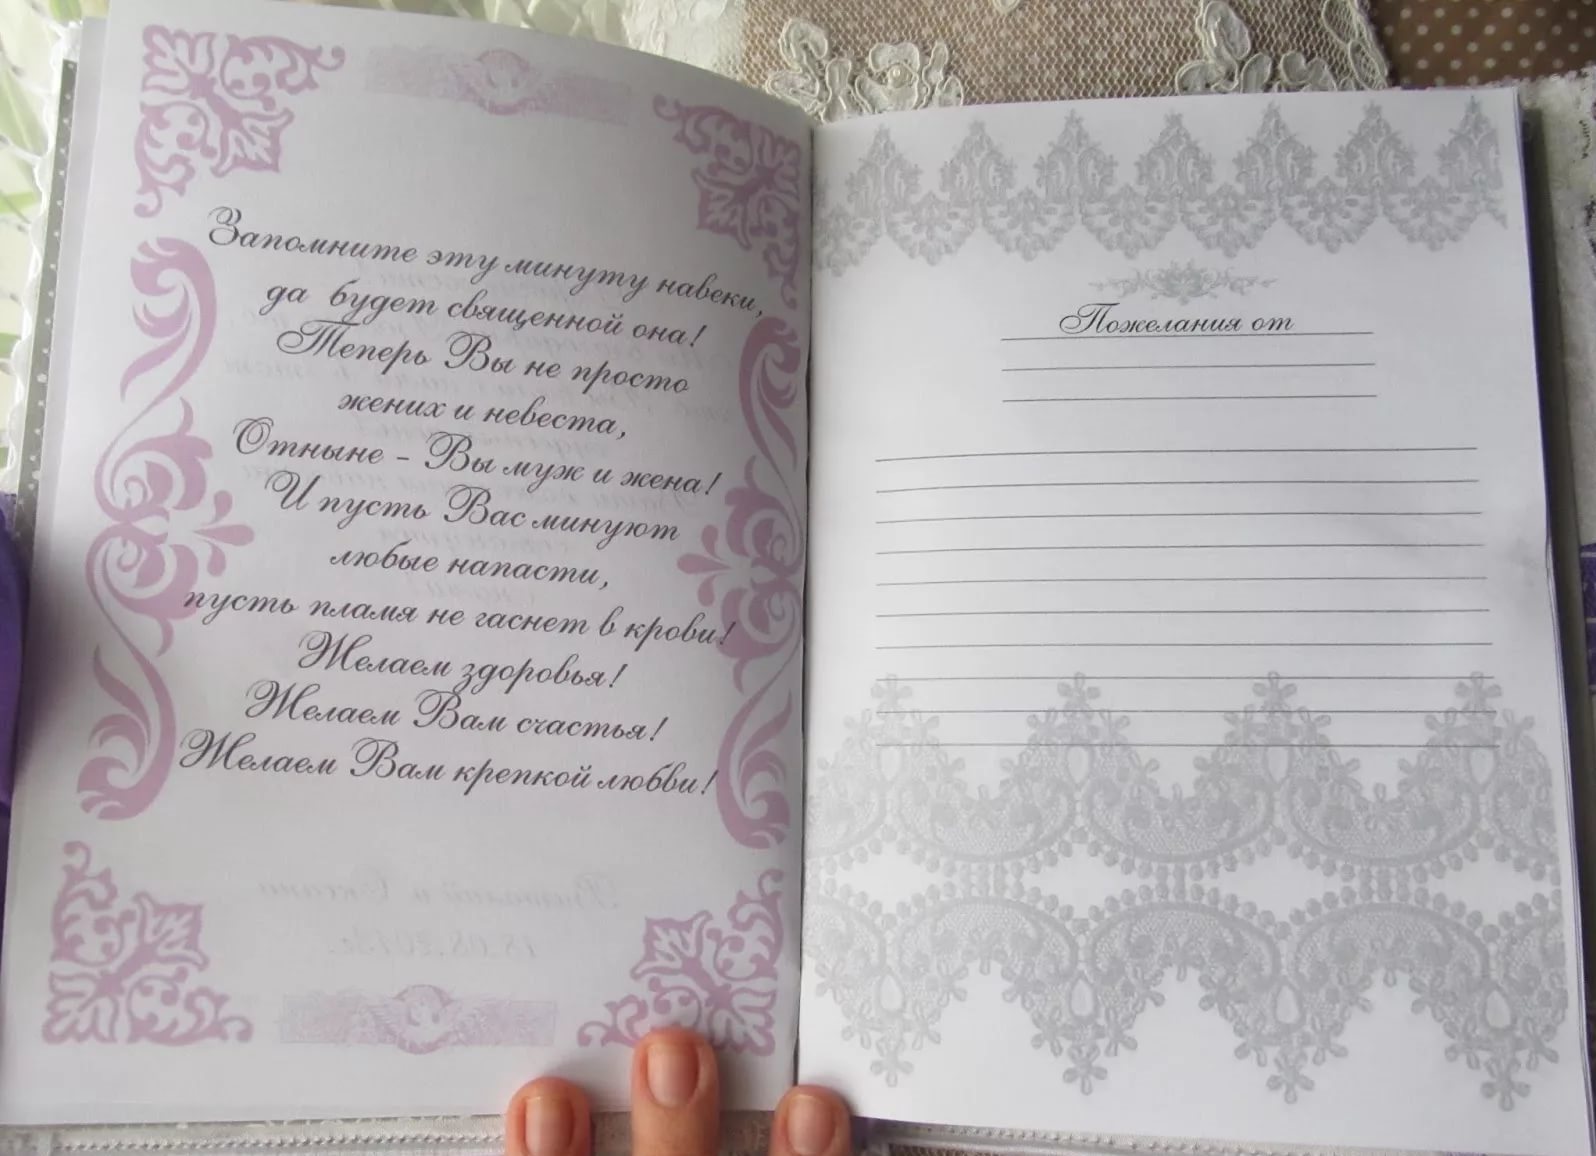 Запомните эту минуту навеки,
да будет священной она!
Теперь Вы не просто
жених и невеста,
Отныне - Вы муж и жена!
И пусть Вас минуют
любые напасти,
пусть пламя не гаснет в крови!
Желаем здоровья!
Желаем Вам счастья!
Желаем Вам крепкой любви!
18.08.2013г.
Пожелания от